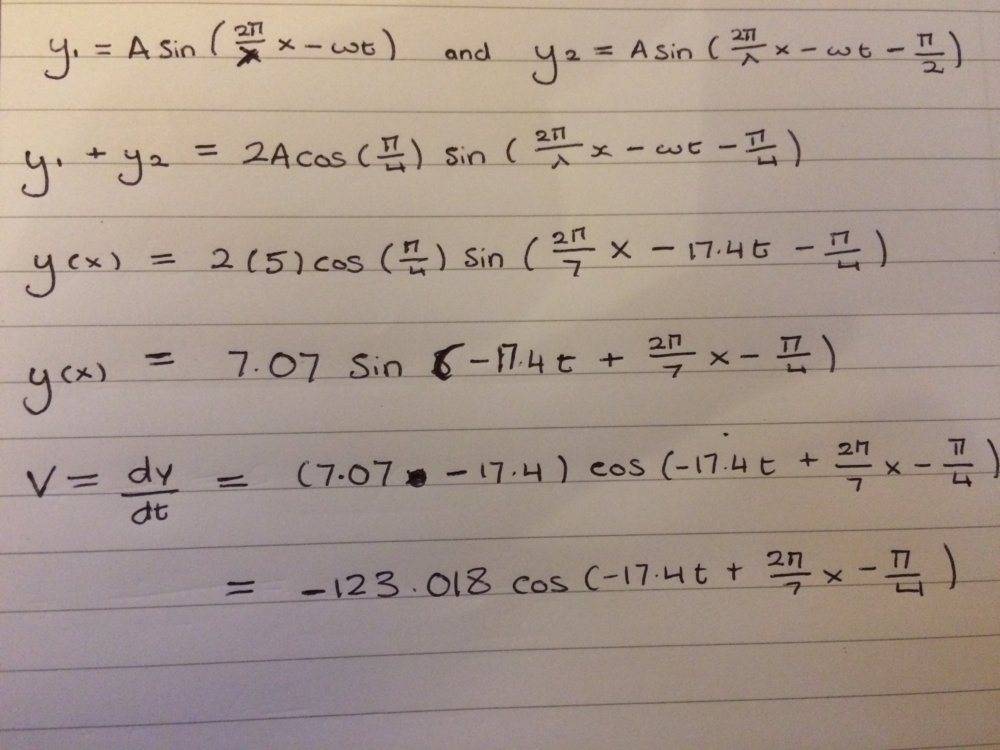 y₁ = A sin (2π/λ x − ωt) and y₂ = A sin (2π/λ x − ωt − π/2)
y₁ + y₂ = 2A cos (π/4) sin (2π/λ x − ωt − π/4)
y(x) = 2(5) cos (π/4) sin (2π/7 x − 17.4t − π/4)
y(x) = 7.07 sin (−17.4t + 2π/7 x − π/4)
V = dy/dt = (7.07 · −17.4) cos (−17.4t + 2π/7 x − π/4)
= −123.018 cos (−17.4t + 2π/7 x − π/4)